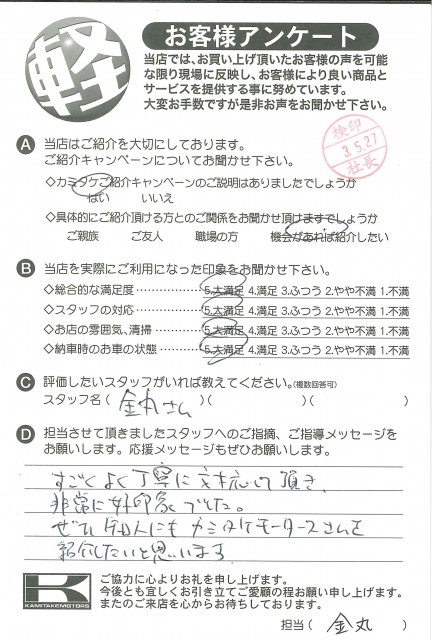 軽
お客様アンケート
当店では、お買い上げ頂いたお客様の声を可能
な限り現場に反映し、お客様により良い商品と
サービスを提供する事に努めています。
大変お手数ですが是非お声をお聞かせ下さい。
検印
3.5.27
社長
A 当店はご紹介を大切にしております。
ご紹介キャンペーンについてお聞かせ下さい。
◇カミタケご紹介キャンペーンのご説明はありましたでしょうか
はい いいえ
◇具体的にご紹介頂ける方とのご関係をお聞かせ頂けますでしょうか
ご親族 ご友人 職場の方 機会があれば紹介したい
B 当店を実際にご利用になった印象をお聞かせ下さい。
◇総合的な満足度 5.大満足 4.満足 3.ふつう 2.やや不満 1.不満
◇スタッフの対応 5.大満足 4.満足 3.ふつう 2.やや不満 1.不満
◇お店の雰囲気、清掃 5.大満足 4.満足 3.ふつう 2.やや不満 1.不満
◇納車時のお車の状態 5.大満足 4.満足 3.ふつう 2.やや不満 1.不満
C 評価したいスタッフがいれば教えてください。(複数回答可)
スタッフ名( 金丸さん )( )( )
D 担当させて頂きましたスタッフへのご指摘、ご指導メッセージを
お願いします。応援メッセージもぜひお願いします。
すごくよく丁寧に対応して頂き、
非常に好印象でした。
ぜひ知人にもカミタケモータースさんを
紹介したいと思います
K
KAMITAKEMOTORS
ご協力に心よりお礼を申し上げます。
今後とも宜しくお引き立てご愛顧の程お願い申し上げます。
またのご来店を心からお待ちしております。
担当( 金丸 )